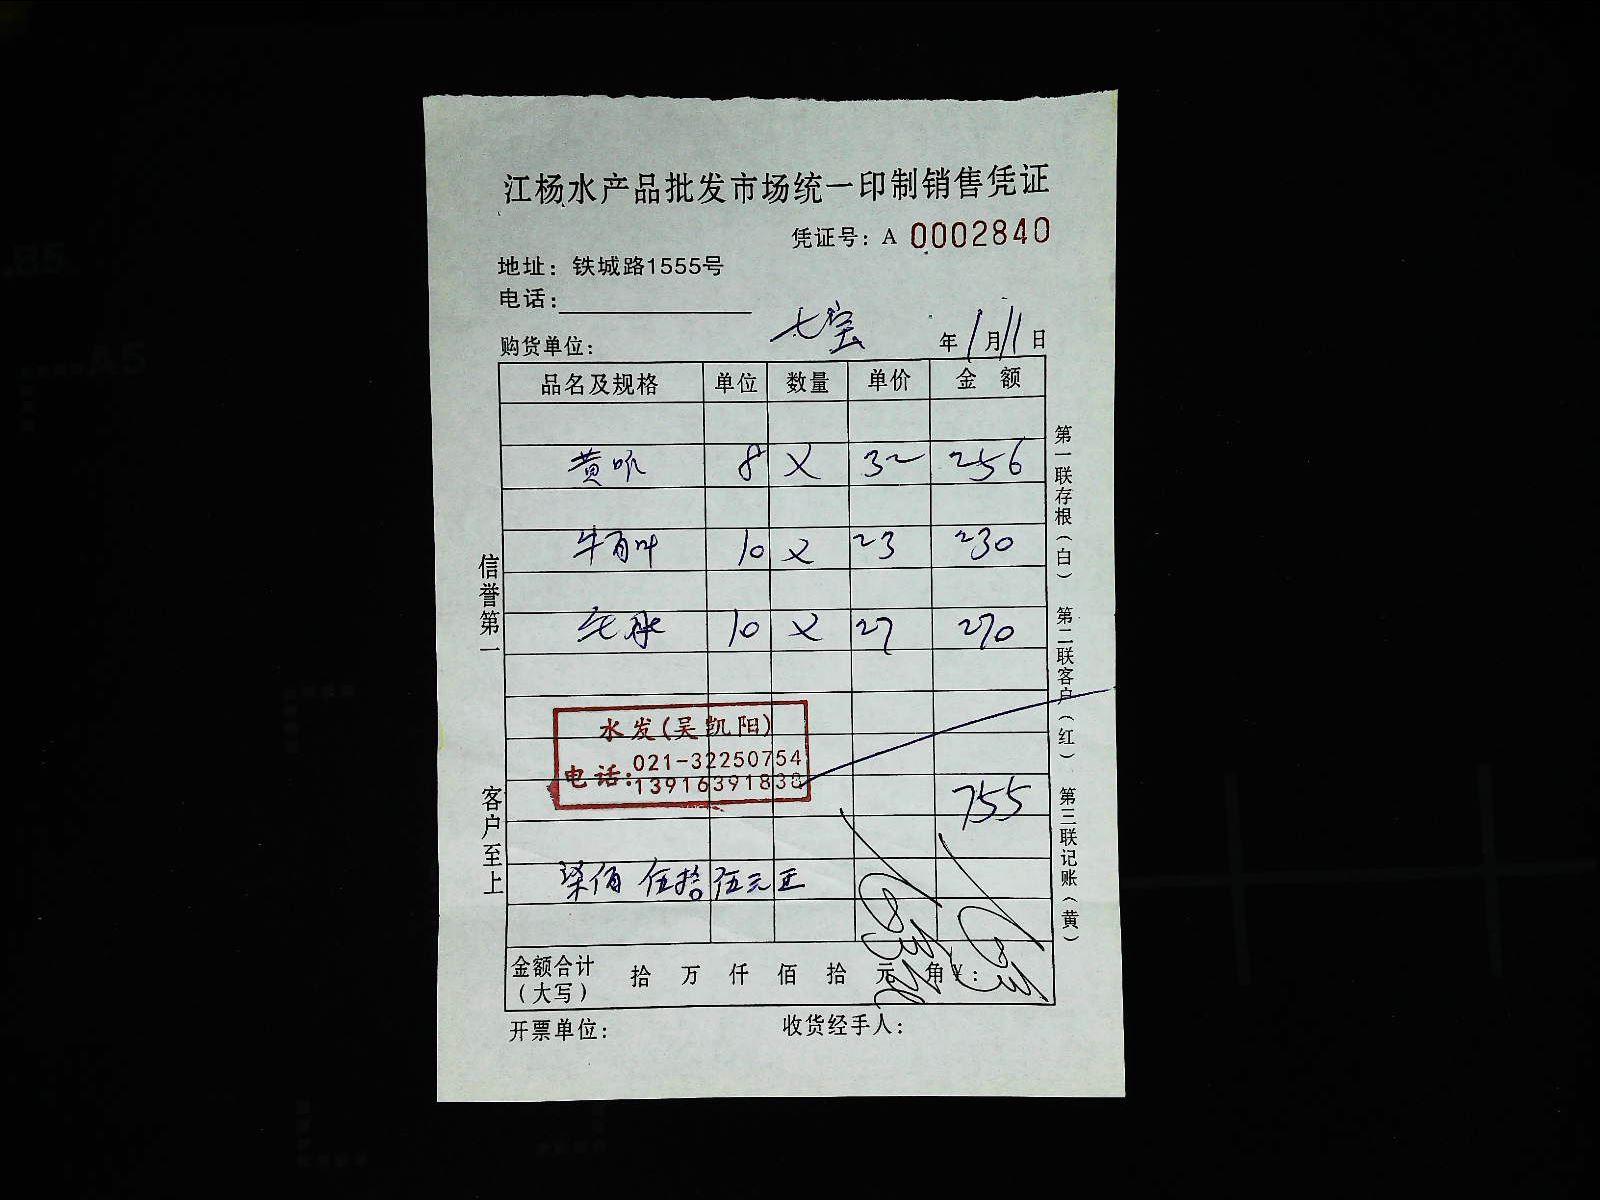 江杨水产品批发市场统一印制销售凭证
凭证号：A 0002840
地址：铁城路1555号
电话：
购货单位： 七宝 年 1 月 11 日
品名及规格 单位 数量 单价 金额
黄 8 × 32 256
牛百叶 10 × 23 230
10 × 27 270
水发(吴凯阳)
电话:021-32250754
13916391838
755
柒佰 伍拾 伍元正
金额合计（大写） 拾 万 仟 佰 拾 元 角 ¥：
开票单位： 收货经手人：
信誉第一
客户至上
第一联存根（白）
第二联客户（红）
第三联记账（黄）